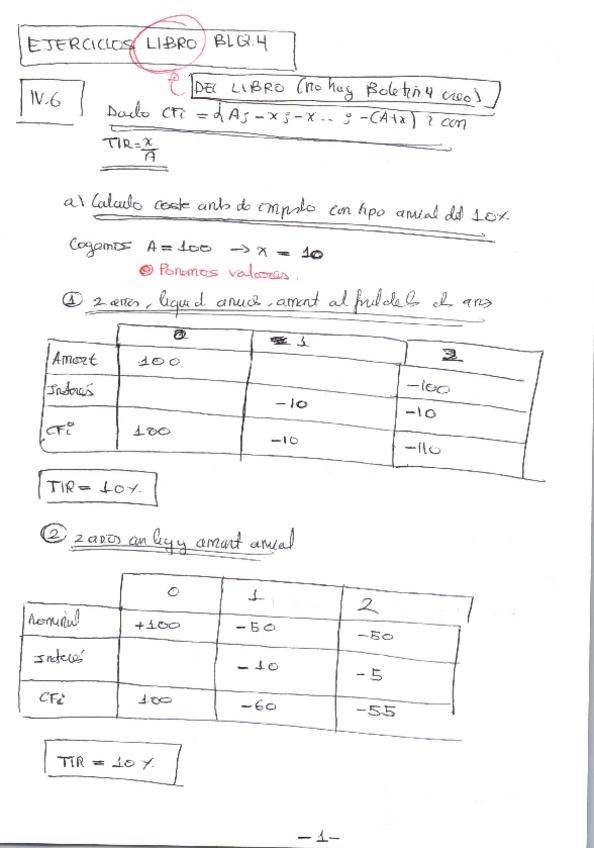 EJERCICIOS LIBRO BLQ.4
DEL LIBRO (no hay Boletín 4 creo)
IV.6
Dado CFi = {A; -x; -x... ; -(A+x)} i con
TIR = x/A
a) Calculo coste antes de impsto con tipo anual del 10%.
Cogemos A = 100 → x = 10
Ponemos valores.
① 2 años, liquid. anual, amort al final de los años
0 1 2
Amort 100 -100
Interés -10 -10
CFi 100 -10 -110
TIR = 10%
② 2 años con liq y amort anual
0 1 2
Nominal +100 -50 -50
Interés -10 -5
CFi 100 -60 -55
TIR = 10%
-1-